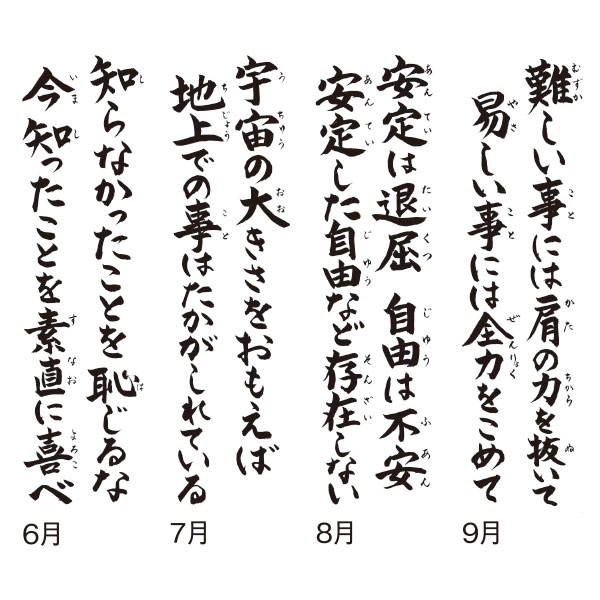 難しい事には肩の力を抜いて
易しい事には全力をこめて
9月
安定は退屈 自由は不安
安定した自由など存在しない
8月
宇宙の大きさをおもえば
地上での事はたかがしれている
7月
知らなかったことを恥じるな
今知ったことを素直に喜べ
6月